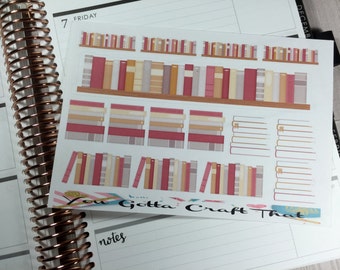 7 FRIDAY
DECEMBER
You Gotta Craft That
notes